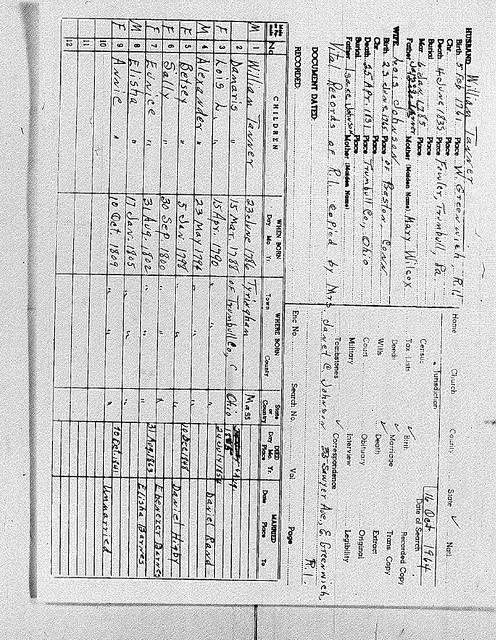 HUSBAND William Tanner
Birth 5 Feb 1761 Place W. Greenwich, R.I.
Chr. Place
Death 4 June 1835 Place Fowler, Trumbull,
Burial Place
Mar. 1785 Place
Father Tanner Mother (Maiden Name) Mary Wilcox
WIFE Lois Johnson
Birth 23 June 1765 Place of Preston Conn
Chr. Place
Death 25 Apr. 1831 Place Trumbull Co, Ohio
Burial Place
Father Isaac Johnson Mother (Maiden Name)
Vital Records of R.I. Copied by Mrs. Janet C. Johnson Sawyer Ave., E. Greenwich, R.I.
DOCUMENT DATED:
RECORDED:
Home Church County State ✓ Natl.
Jurisdiction
16 Oct 1964
Date of Search
Census
Tax Lists ✓ Birth Recorded Copy
Deeds ✓ Marriage Trans. Copy
Wills ✓ Death Extract
Court Obituary Original
Military Interview Legibility
Tombstones ✓ Correspondence
Enc No. Search No. Vol Page
No. CHILDREN
WHEN BORN
Day Mo. Yr.
WHERE BORN
Town County State or Country
DIED
Day Mo. Yr.
Place
MARRIED
Date Place To
M 1 William Tanner 23 June 1786 Tyringham Mass
F 2 Damaris " 15 Mar. 1788 of Trumbull Co, Ohio
F 3 Lois L. " 15 Apr. 1790 " " 24 July
M 4 Alexander " 23 May " " Daniel Rand
F 5 Betsey " 5 Jan 1798 " "
F 6 Sally " 30 Sep. 1800 " " Daniel Higby
F 7 Eunice " 31 Aug. 1802 " " 31 Aug. 1863 Ebenezer Barnes
M 8 Elisha " 17 Jan. 1805 " " Elisha Barnes
F 9 Annie " 10 Oct. 1809 " " 10 Oct. 1841 Unmarried
10
11
12